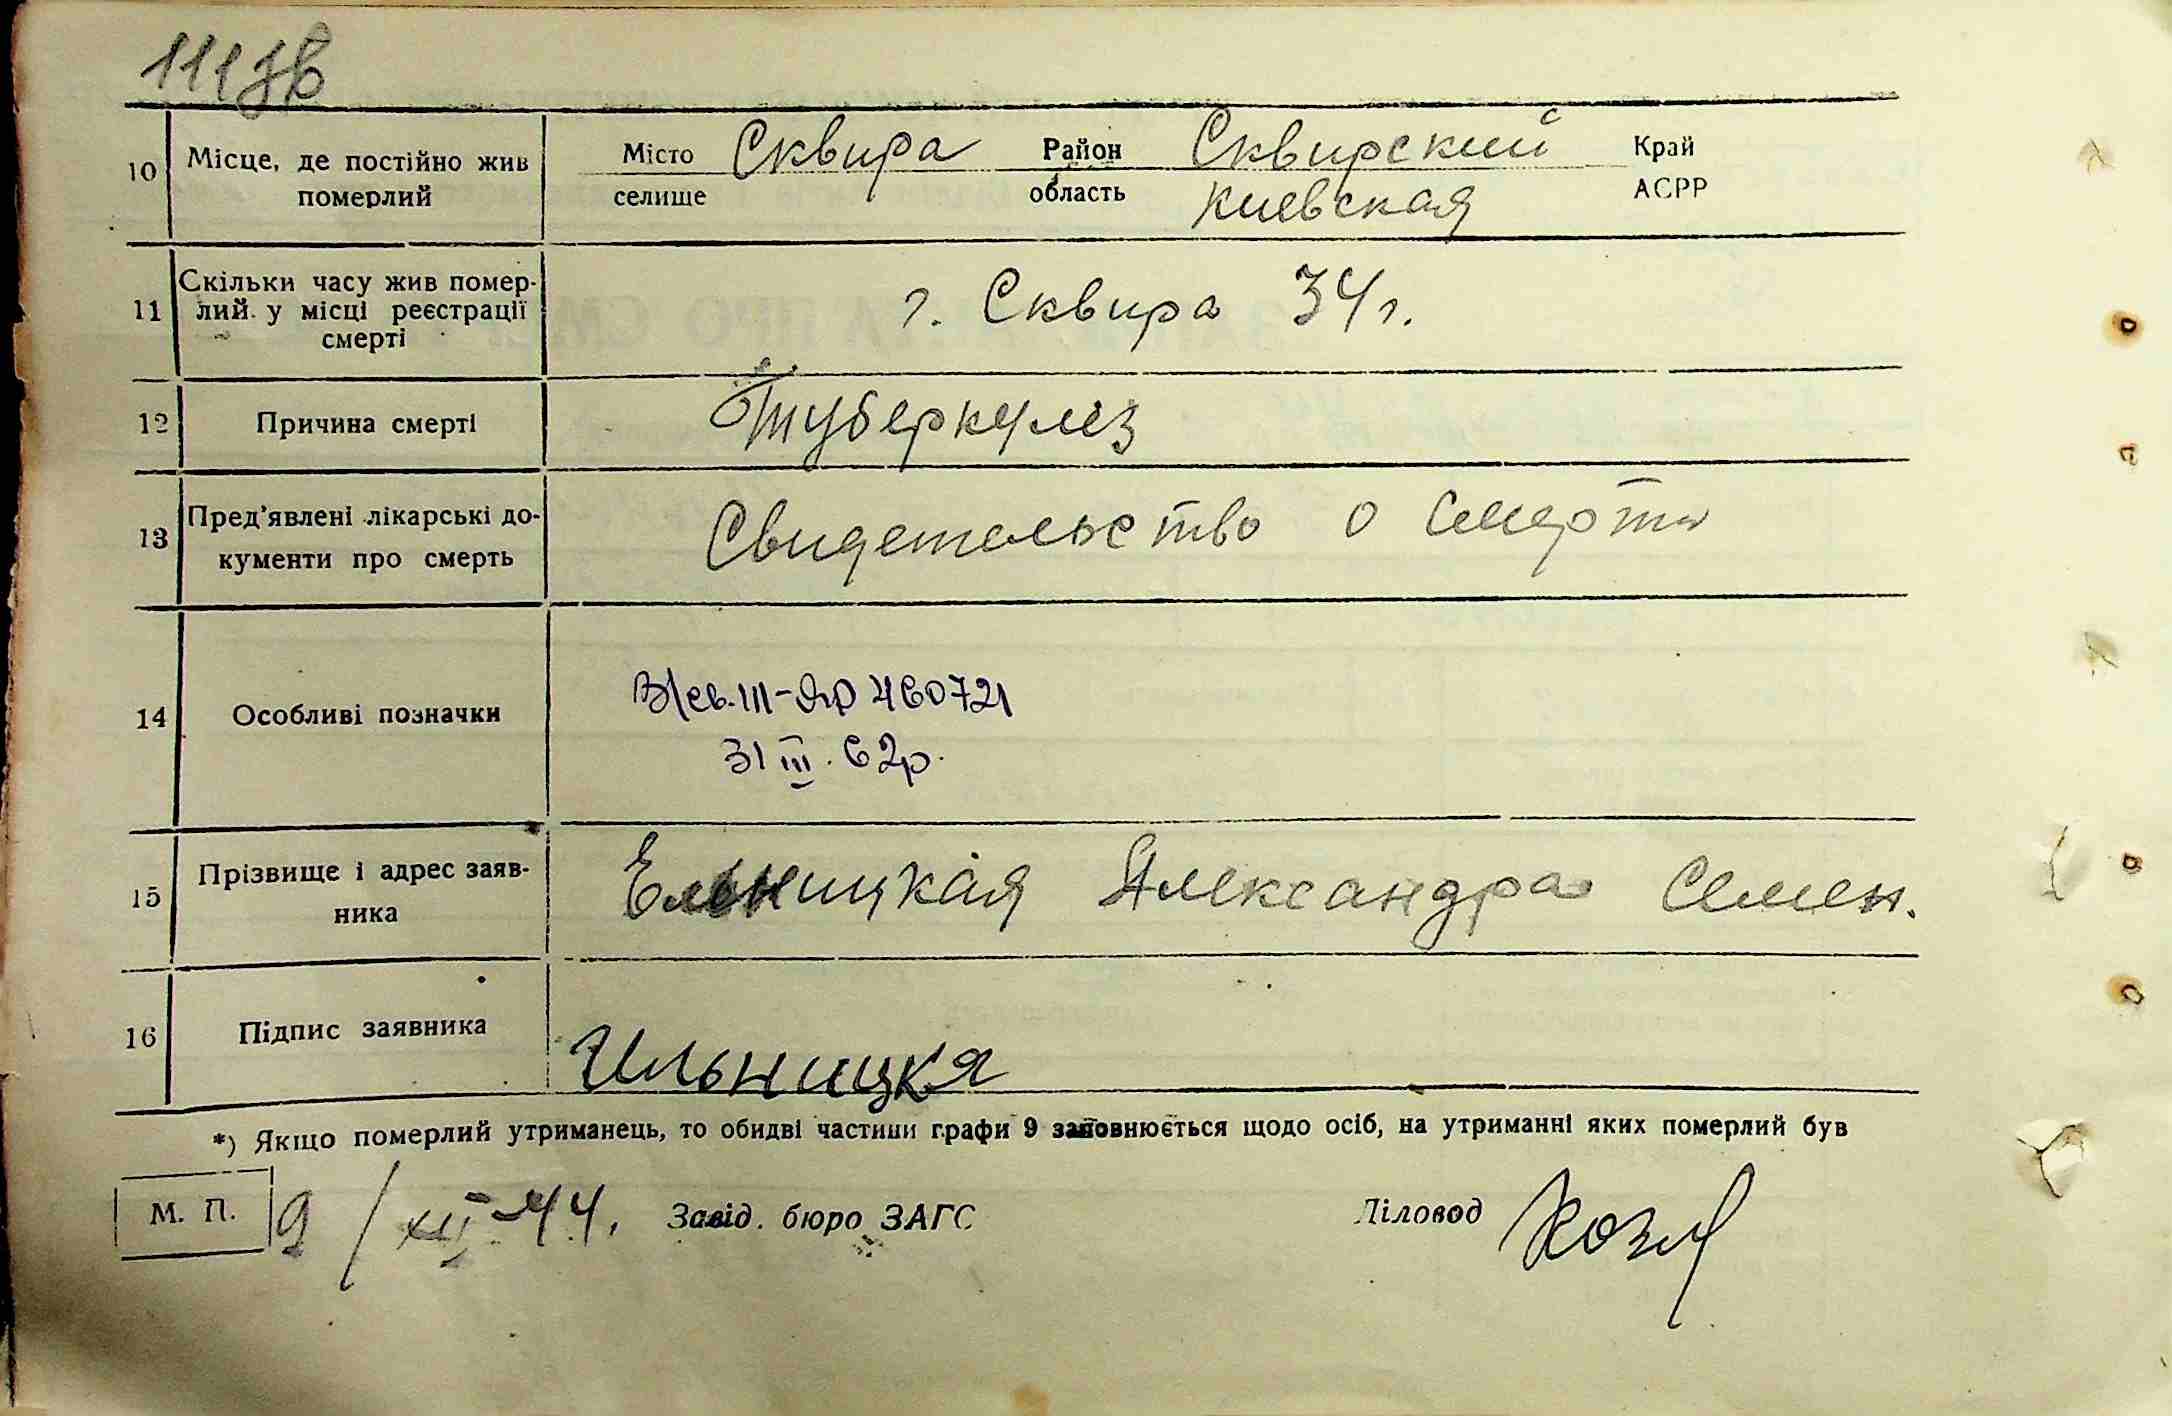 111
10 Місце, де постійно жив померлий Місто селище Сквира Район область Сквирский Киевская Край АСРР
11 Скільки часу жив помер-
лий у місці реєстрації
смерті
г. Сквира 34 г.
12 Причина смерті Туберкулез
13 Пред'явлені лікарські до-
кументи про смерть
Свидетельство о смерти
14 Особливі позначки
460721
31 III. 62р.
15 Прізвище і адрес заяв-
ника
Ельницкая Александра Семен.
16 Підпис заявника Ильницкя
*) Якщо померлий утриманець, то обидві частини графи 9 заповнюється щодо осіб, на утриманні яких померлий був
М. П. 9/XII-44. Завід. бюро ЗАГС Діловод